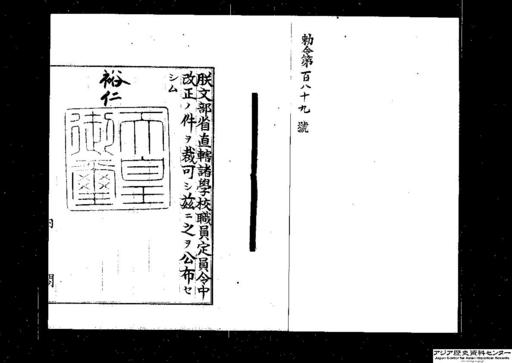 勅令第百八十九號
朕文部省直轄諸學校職員定員令中
改正ノ件ヲ裁可シ茲ニ之ヲ公布セ
シム
裕仁
天皇
御璽
内閣
アジア歴史資料センター
Japan Center for Asian Historical Records